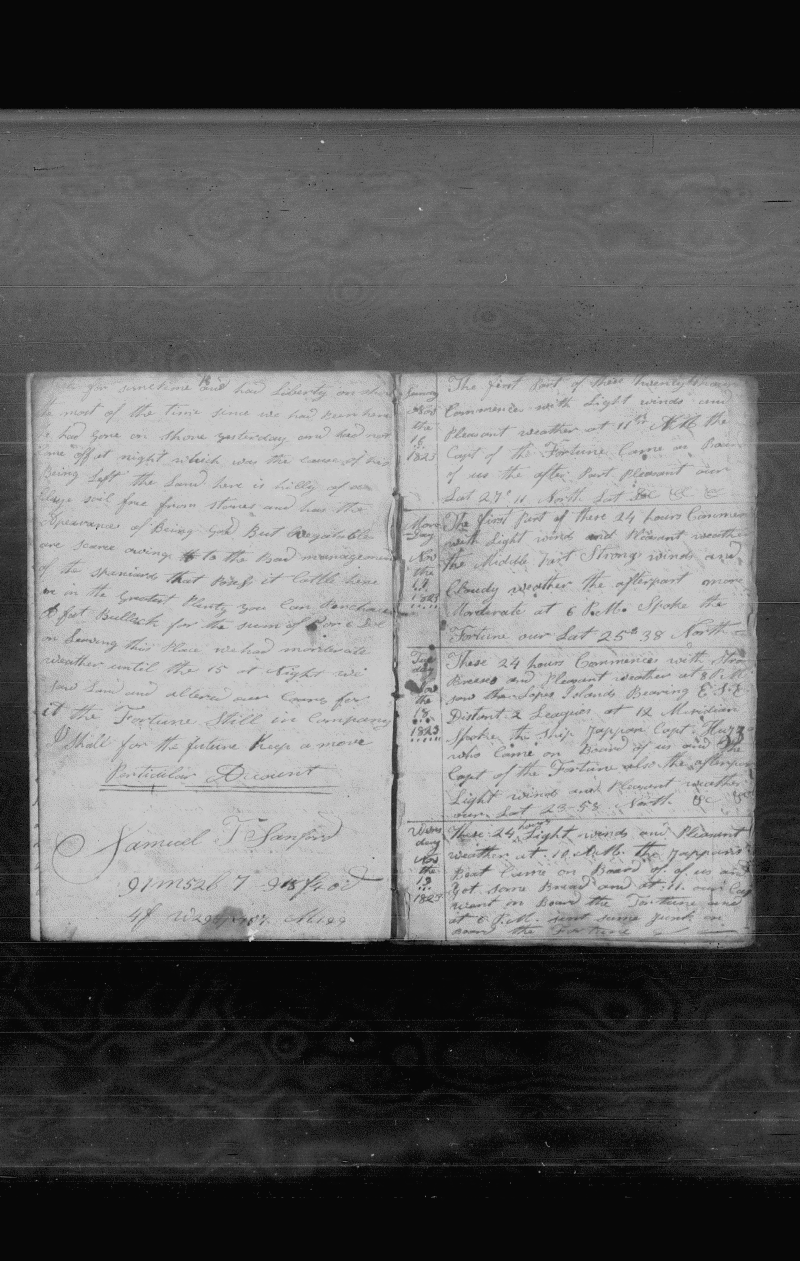 for sometime and had Liberty on shore
the most of the time since we had been here
he had gone on shore yesterday and had not
come off at night which was the cause of his
Being Left the Land here is hilly of a
soil free from stones and has the
Apearance of Being God But Vegitables
are scarce owing to the Bad management
of the spaniards that Posses it Cattle here
in the Greatest Plenty you Can Purchase
A fat Bullock for the sum of
on Leaving this Place we had moderate
weather until the 15 at Night
saw Land and altered our Course for
it the Fortune Still in Company
I Shall for the future Keep a more
Particular Account
Samuel T Sanford
Sunday
Nov
the
16
1823
The first Part of these twentyfour
Commences with Light winds and
Pleasant weather at 11 A.M. the
Capt of the Fortune Came on Board
of us the after Part Pleasant our
Lat 27° 11 North
Mon
day
Nov
the
17
1823
The first Part of these 24 hours Commen
with Light winds and Pleasant weather
the Middle Part Strong winds and
Cloudy weather the afterpart more
Moderate at 6 P.M. Spoke the
Fortune our Lat 25° 38 North
day
Nov
the
18
1823
These 24 hours Commences with
Breeses and Pleasant weather at 8
saw the Islands Bearing E.S.E
Distant 2 Leagues at 12 Meridian
Spoke the Ship Jappan Capt
who Came on Board of us and the
Capt of the Fortune also the afterpart
Light winds and Pleasant weather
our Lat 23-58 North
day
Nov
the
19
1823
These 24 hours Light winds and Pleasant
weather at 10 A.M. the Jappans
Boat Came on Board of us and
Got some Bread and at 11 our Cap
went on Board the Fortune and
at 6 P.M. sent some Junk on
Board the Fortune